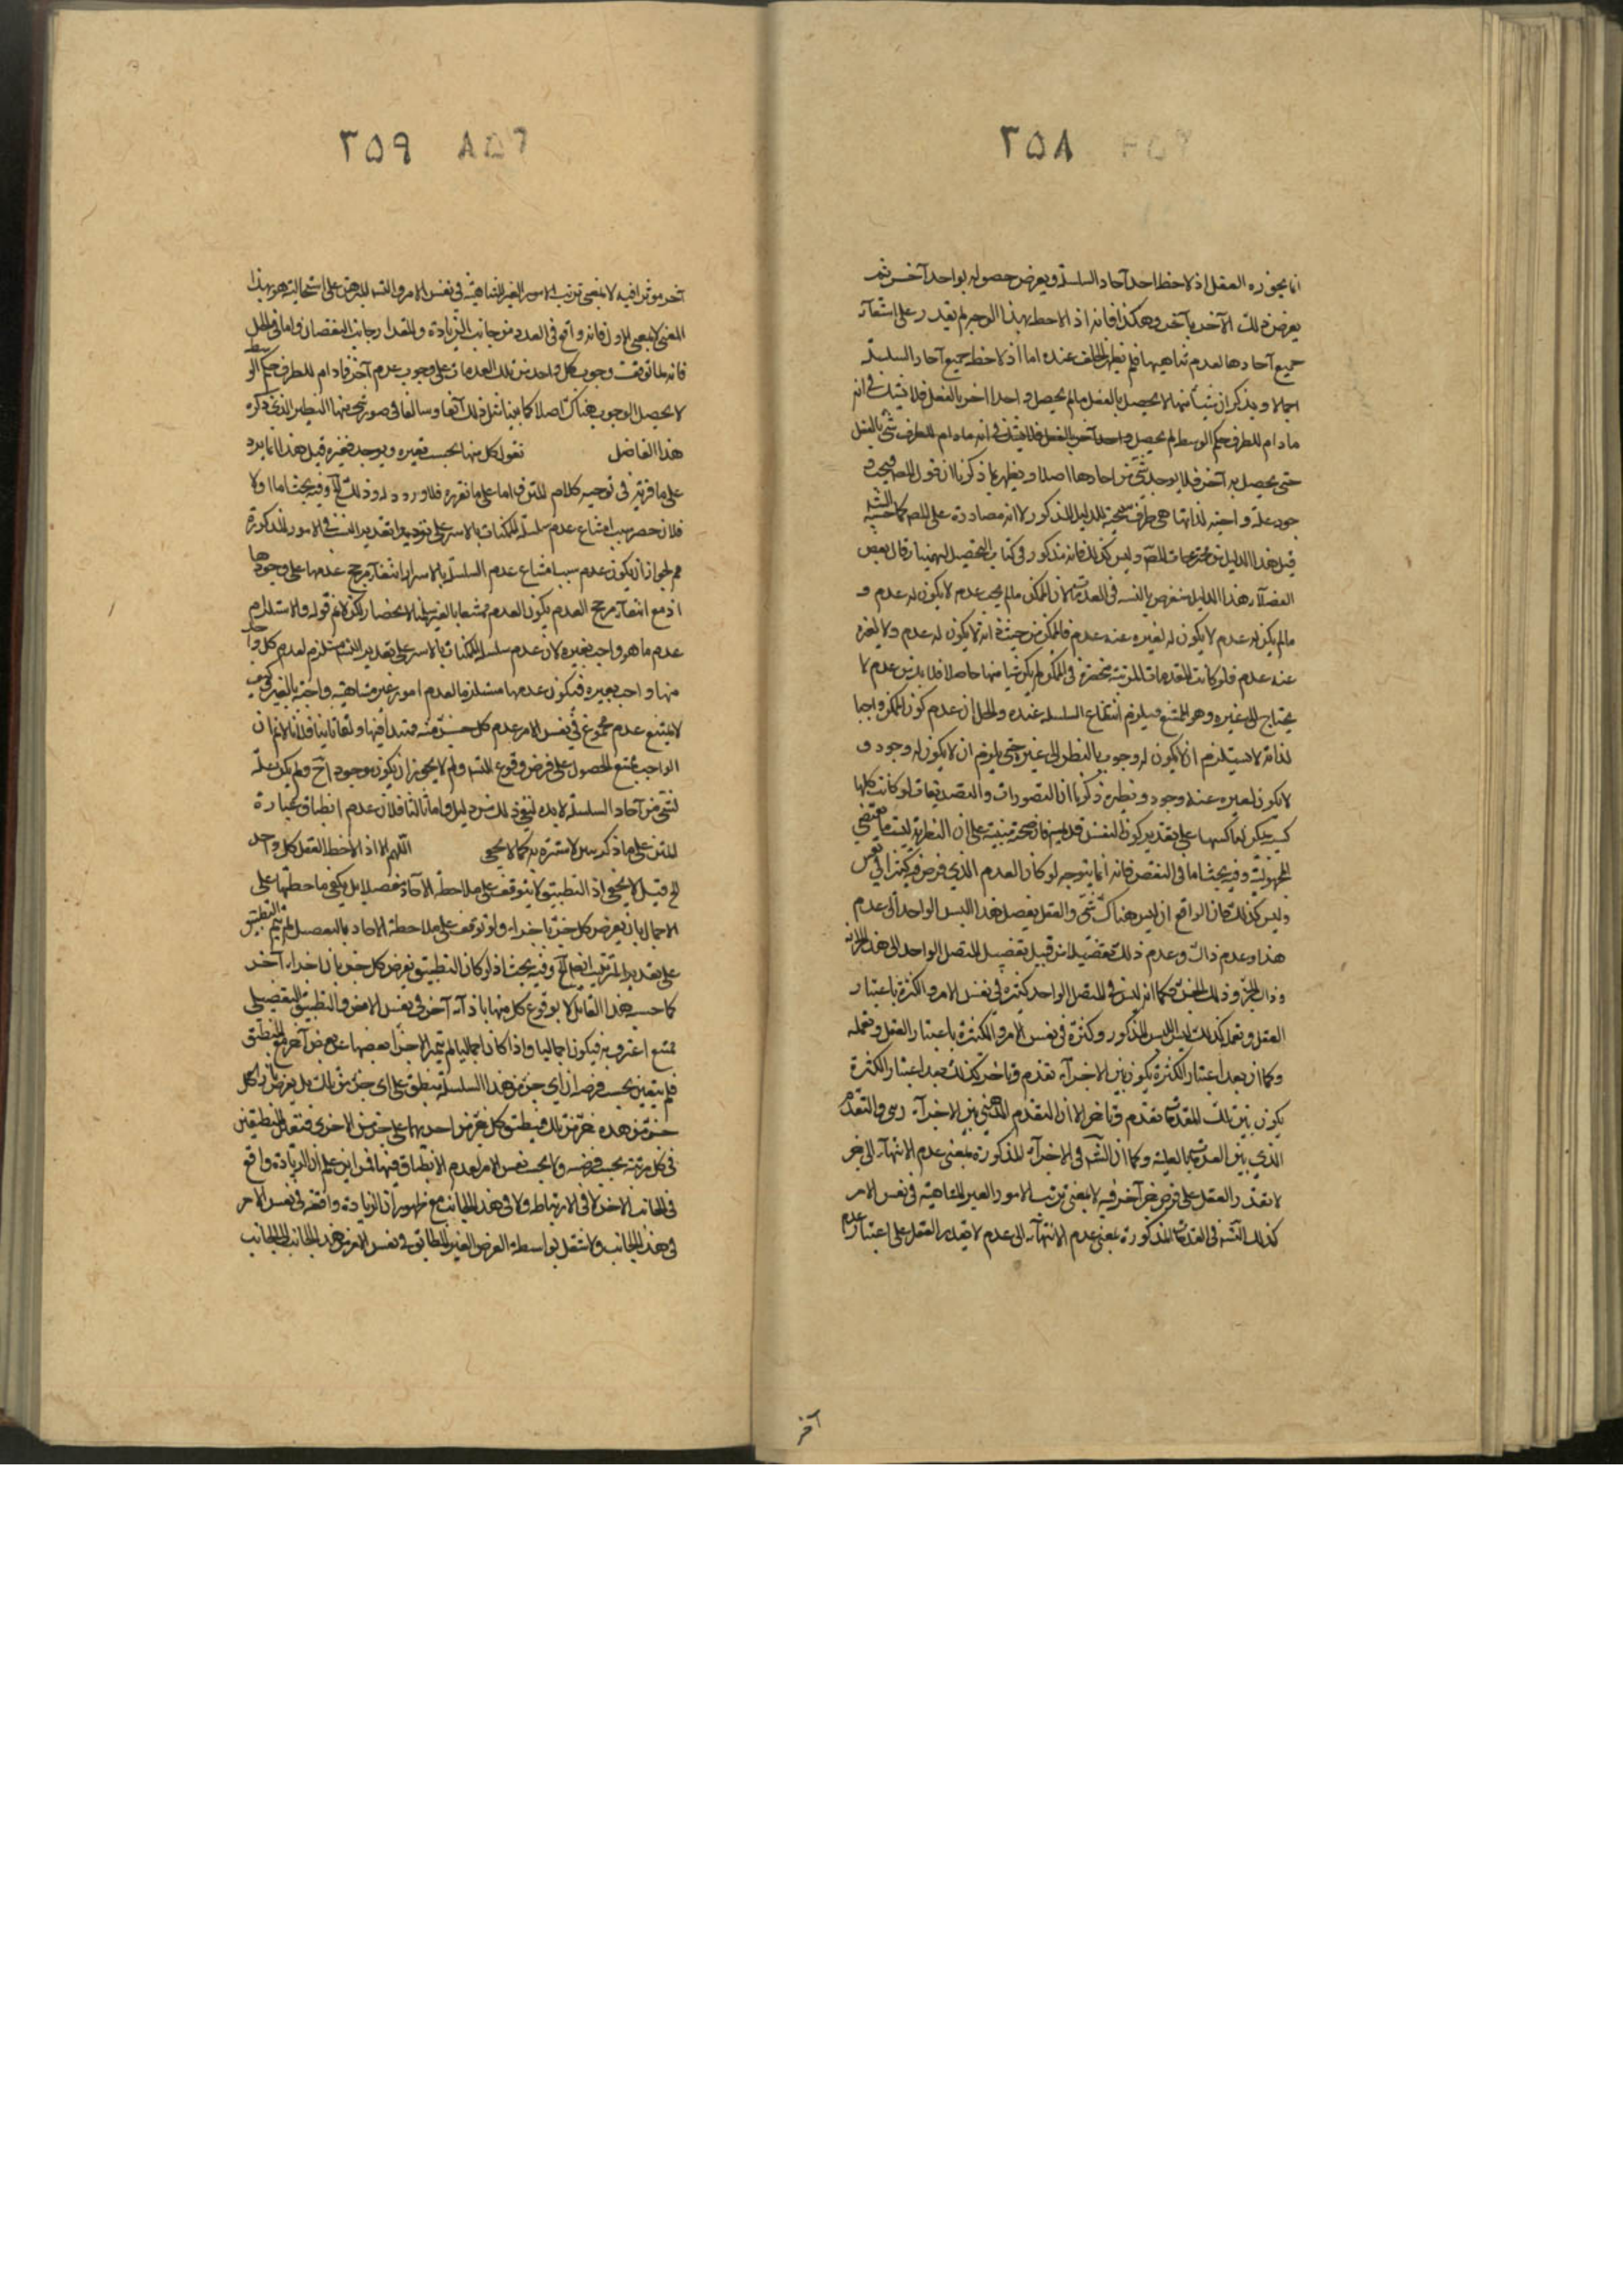 ٢۵٨
انما يجوزه العقل اذ لاحظ احد آحاد السلسلة ويعرض حصوله بواحد آخر ثم
يعرض ذلك الآخر بآخر وهكذا فانه اذ الاحظ بهذا الوجه لم يقدر على استقآء
جميع آحادها لعدم تناهيها فلم يظهر الخلف عنده اما اذ لاحظ جميع آحاد السلسلة
اجمالا ويذكر ان شيئا منها لا يحصل بالفعل مالم يحصل واحد آخر بالفعل فلا يشك في انه
ما دام للطرف حكم الوسط لم يحصل واحد آخر بالفعل فلا يشك في انه مادام للطرف شئ بالفعل
حتى يحصل به آخر فلا يوجد شئ من احادها اصلا ويظهر بما ذكرنا ان قول المصه فيجب
وجود علة واجبة لذاتها هي طرف نتيجة للدليل المذكور لا انه مصادرة على المصه كما حسبه الشه
قيل هذا الدليل من مخترعات المصه وليس كذلك فانه مذكور في كتاب التحصيل لبهمنيار قال بعض
الفضلاء هذا الدليل منقوض بالتسه في العدمات لان الممكن مالم يجب عدمه لا يكون له عدم و
مالم يكن له عدم لا يكون له لغيره عنه عدم فالممكن من حيث ذاته لا يكون له عدم ولا لغيره
عنه عدم فلو كانت المقدمات المرتبة منحصرة في الممكن لم يكن شيا منها حاصلا فلا بد من عدم لا
يحتاج الى غيره وهو الممتنع فيلزم انقطاع السلسلة عنده والحل ان عدم كون الممكن واجبا
لذاته لا يستلزم ان لا يكون له وجوب بالنظر الى غيره حتى يلزم ان لا يكون له وجود و
لا يكون لغيره عنه وجود ونظيره ذكروا ان التصورات والتصديقات لو كانت كلها
كسبية لكن لها كسبها على تقدير كون النفس قديمة فان صحته مبنية على ان النظرية ليست مقتضى
المجهولية وفيه بحث اما في النقض فانه انما يتوجه لو كان العدم الذي فرض فيه كثيرا في نفس
وليس كذلك فان الواقع ان ليس هناك شئ والعقل يفصل هذا الليس الواحد الى عدم
هذا وعدم ذاك وعدم ذلك تفصيلا من قبيل تفصيل المتصل الواحد الى هذا الجزء
وذاك الجزء وذلك الجزء فكما انه ليس في المتصل الواحد كثرة في نفس الامر والكثرة باعتبار
العقل وتعمله كذلك ليس لليس المذكور كثرة في نفس الامر والكثرة باعتبار العقل وتعمله
وكما ان بعد اعتبار الكثرة يكون بين الاجزآء تقدم وتاخر كذلك بعد اعتبار الكثرة
يكون بين تلك العدمات تقدم وتاخر الا ان التقدم الذي بين الاجزآء رسى والتقدم
الذي بين العدمات بالعلية وكما ان التسه في الاجزآء المذكورة بمعنى عدم الانتهآء الى جزء
لا يقدر العقل على فرض جزء آخر فيه لا بمعنى ترتب الامور الغير المتناهية في نفس الامر
كذلك التسه في العدمات المذكورة بمعنى عدم الانتهآء الى عدم لا يقدر العقل على اعتبار عدم
آخر
٢۵٩
آخر موثر فيه لا بمعنى ترتب الامور الغير المتناهية في نفس الامر والتسه المبرهن على استحالته هو بهذا
المعنى لا بمعنى الاول فانه واقع في العدد من جانب الزيادة والمقدار من جانب النقصان واما في الحل
فانه لما توقف وجوب كل واحد من تلك العدمات على وجوب عدم آخر فما دام للطرف حكم الوسط
لا يحصل الوجوب هناك اصلا كما بينا مثل ذلك آنفا وسالفا في صور شتى منها النظير الذي ذكره
هذا الفاضل نقول كل منها يجب بغيره ويوجد بغيره قيل هذا انما يرد
على ما قرره في توجيه كلام المتن واما على ما نقرره فلا ورود له وذلك الخ وفيه بحث اما اولا
فلان حصر سبب امتناع عدم سلسلة الممكنات بالاسر على تقدير التسه في الامور المذكورة
مم لجواز ان يكون عدم سبب امتناع عدم السلسلة بالاسر انتفآء مرجح عدمها على وجودها
اذ مع انتفآء مرجح العدم يكون العدم ممتنعا بالغير سلمنا الانحصار لكن لا نم قوله والا استلزم
عدم ما هو واجب بغيره لان عدم سلسلة الممكنات بالاسر على تقدير التسه مستلزم لعدم كل واحد
منها واجب بغيره فيكون عدمها مستلزما لعدم امور غير متناهية واجبة بالغير فكيف
لا يمتنع عدم مجموع في نفس الامر عدم كل جزء منه فتدبر فيها واما ثانيا فلانا لا نم ان
الواجب ممتنع الحصول على فرض وقوع التسه ولم لا يجوز ان يكون موجودا ولم يكن علة
لشئ من آحاد السلسلة لا بد لنفي ذلك من دليل واما ثالثا فلان عدم انطباق عبارة
المتن على ما ذكره بين لا سترة به كما لا يخفى اللهم الا اذا لاحظ العقل كل واحد
الخ قيل لا يخفى اذ التطبيق لا يتوقف على ملاحظة الآحاد مفصلا بل يكفى ملاحظتها على
الاجمال بان يعرض كل جزء باجزاء ولو توقف على ملاحظة الاحاد بالتفصيل لم يتم التطبيق
على تقدير الترتيب ايضا الخ وفيه بحث اذ لو كان التطبيق بعرض كل جزء بان اجزاء آخر
كما حسبه هذا القائل لا بوقوع كل منها باذآء آخر في نفس الامر والتطبيق التفصيلى
ممتنع اعترف به فيكون اجماليا واذا كان اجماليا لم يتميز الاجزآء بعضها عن بعض آخر مع المنطبق
فلم يتعين بحسب فرضه ان اي جزء من هذا السلسلة ينطبق على اى جزء من تلك بل يعرض ان كل
جزء من هذه جزء من تلك فينطبق كل جزء من احديهما على جزء من الاخرى فتقابل المنطبقين
في كل مرتبة بحسب فرضه ولا بحسب نفس الامر لعدم الانطباق فيها فمن اين علم ان الزيادة واقع
في الجانب الاخر لا في الارتباط ولا في هذا الجانب مع ظهور ان الزيادة واقعة في نفس الامر
في هذا الجانب ولا تنتقل بواسطة الفرض الغير المطابق في نفس الامر من هذا الجانب الى الجانب